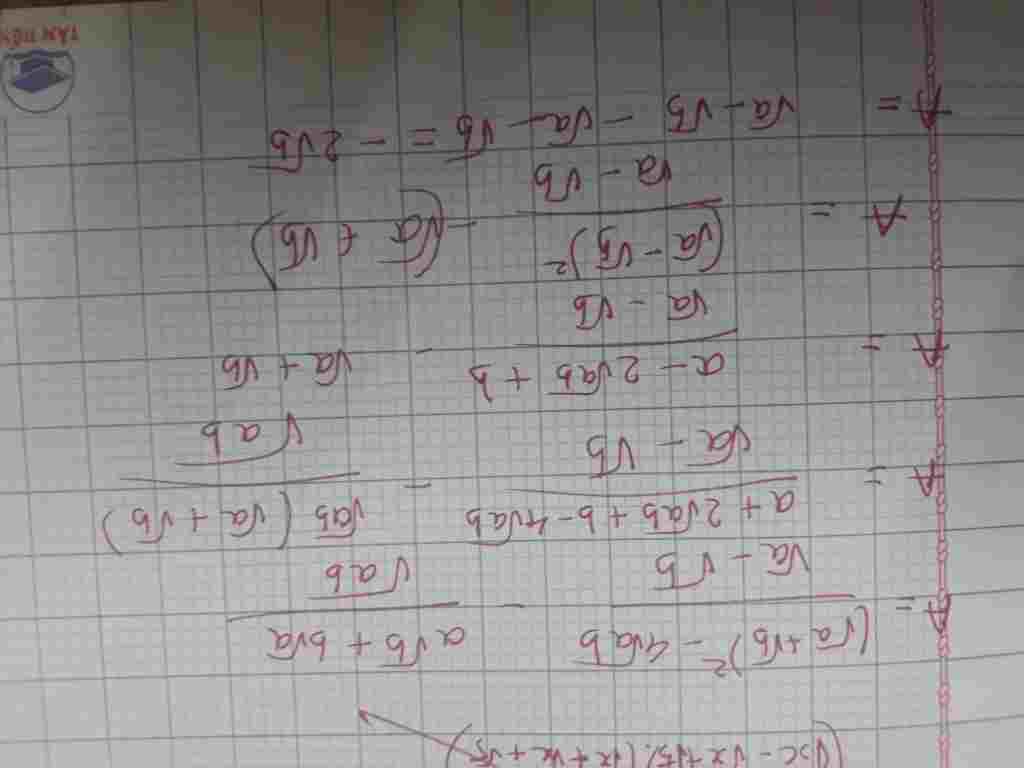 (√x - √x+√5).(√x + √x + √5)
A = (√a+√b)² - 4√ab / √a - √b - a√b + b√a / √ab
A = a + 2√ab + b - 4√ab / √a - √b - √ab (√a + √b) / √ab
A = a - 2√ab + b / √a - √b - √a + √b
A = (√a - √b)² / √a - √b - (√a + √b)
A = √a - √b - √a - √b = - 2√b